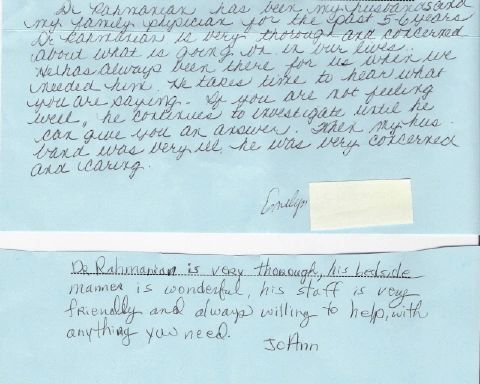 Dr Rahmanian has been my husbands and
my family physician for the past 5-6 years
Dr Rahmanian is very thorough and concerned
about what is going on in our lives.
He has always been there for us when we
needed him. He takes time to hear what
you are saying. If you are not feeling
well, he continues to investigate until he
can give you an answer. When my hus-
band was very ill, he was very concerned
and caring.
Emilyn
Dr Rahmanian is very thorough, his bedside
manner is wonderful, his staff is very
friendly and always willing to help, with
anything you need.
JoAnn